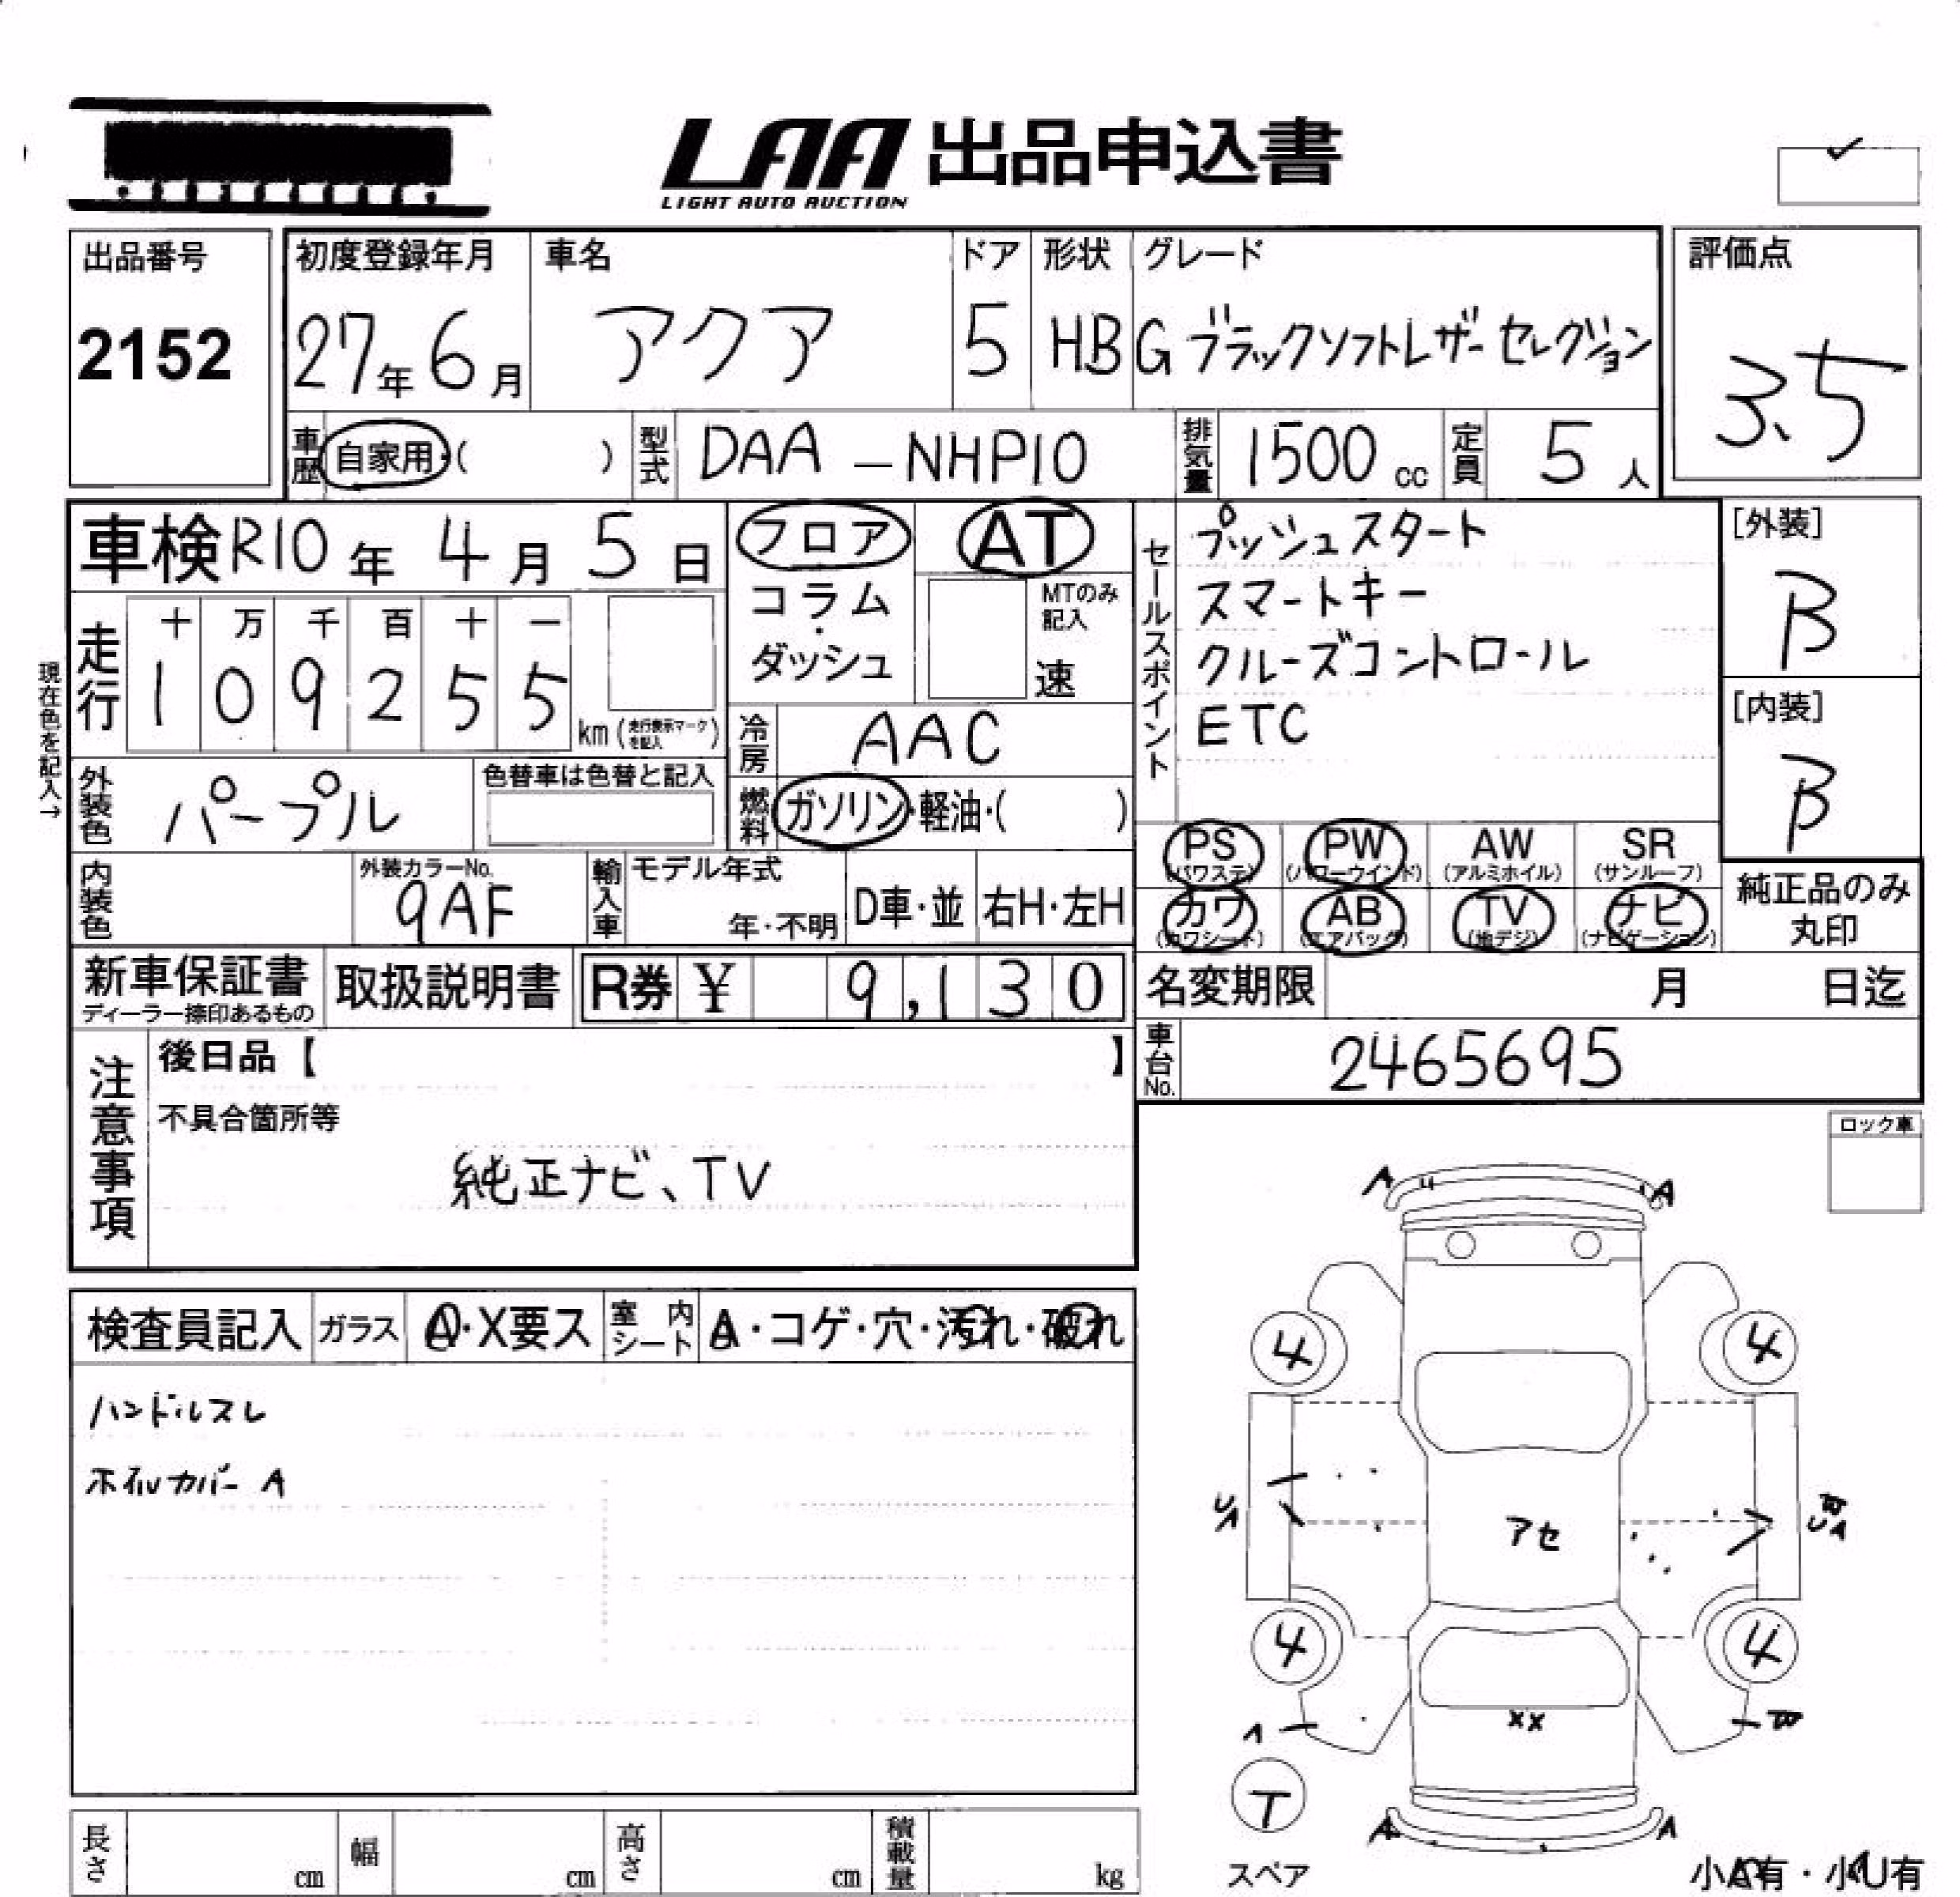 LAA 出品申込書
LIGHT AUTO AUCTION
出品番号
2152
初度登録年月
27年6月
車名
アクア
ドア
5
形状
HB
グレード
G ブラックソフトレザーセレクション
評価点
3.5
車歴 自家用・( )
型式 DAA-NHP10
排気量 1500 cc
定員 5人
車検 R10年4月5日
フロア
コラム
・
ダッシュ
AT
MTのみ
記入
速
セールスポイント
プッシュスタート
スマートキー
クルーズコントロール
ETC
[外装]
B
[内装]
B
現在色を記入→
走行
十 万 千 百 十 一
1 0 9 2 5 5
km (走行表示マークを記入)
冷房 AAC
外装色 パープル
色替車は色替と記入
燃料 ガソリン・軽油・( )
PS (パワステ)
PW (パワーウインド)
AW (アルミホイル)
SR (サンルーフ)
カワ (カワシート)
AB (エアバッグ)
TV (地デジ)
ナビ (ナビゲーション)
純正品のみ
丸印
内装色
外装カラーNo.
9AF
輸入車
モデル年式
年・不明
D車・並
右H・左H
新車保証書
ディーラー捺印あるもの
取扱説明書
R券 ¥ 9,130
名変期限 月 日迄
車台No. 2465695
注意事項
後日品【 】
不具合箇所等
純正ナビ、TV
ロック車
検査員記入
ガラス A・X要ス
室内シート A・コゲ・穴・汚れ・破れ
ハンドルスレ
ホイルカバー A
A A
4 4
アセ
4 4
XX
T
スペア
A A
長さ cm
幅 cm
高さ cm
積載量 kg
小A有・小U有